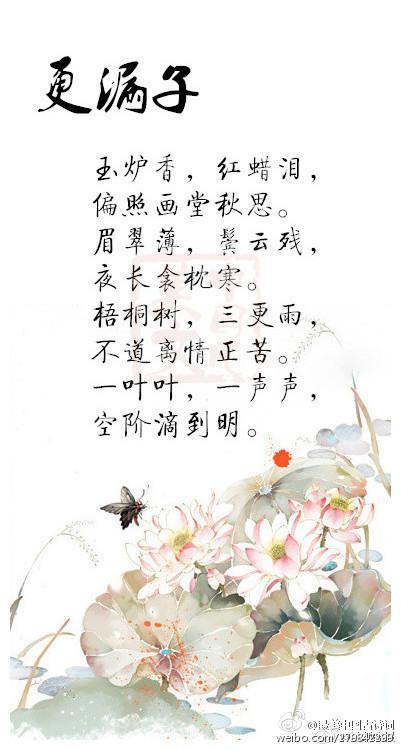 更漏子
玉炉香，红蜡泪，
偏照画堂秋思。
眉翠薄，鬓云残，
夜长衾枕寒。
梧桐树，三更雨，
不道离情正苦。
一叶叶，一声声，
空阶滴到明。